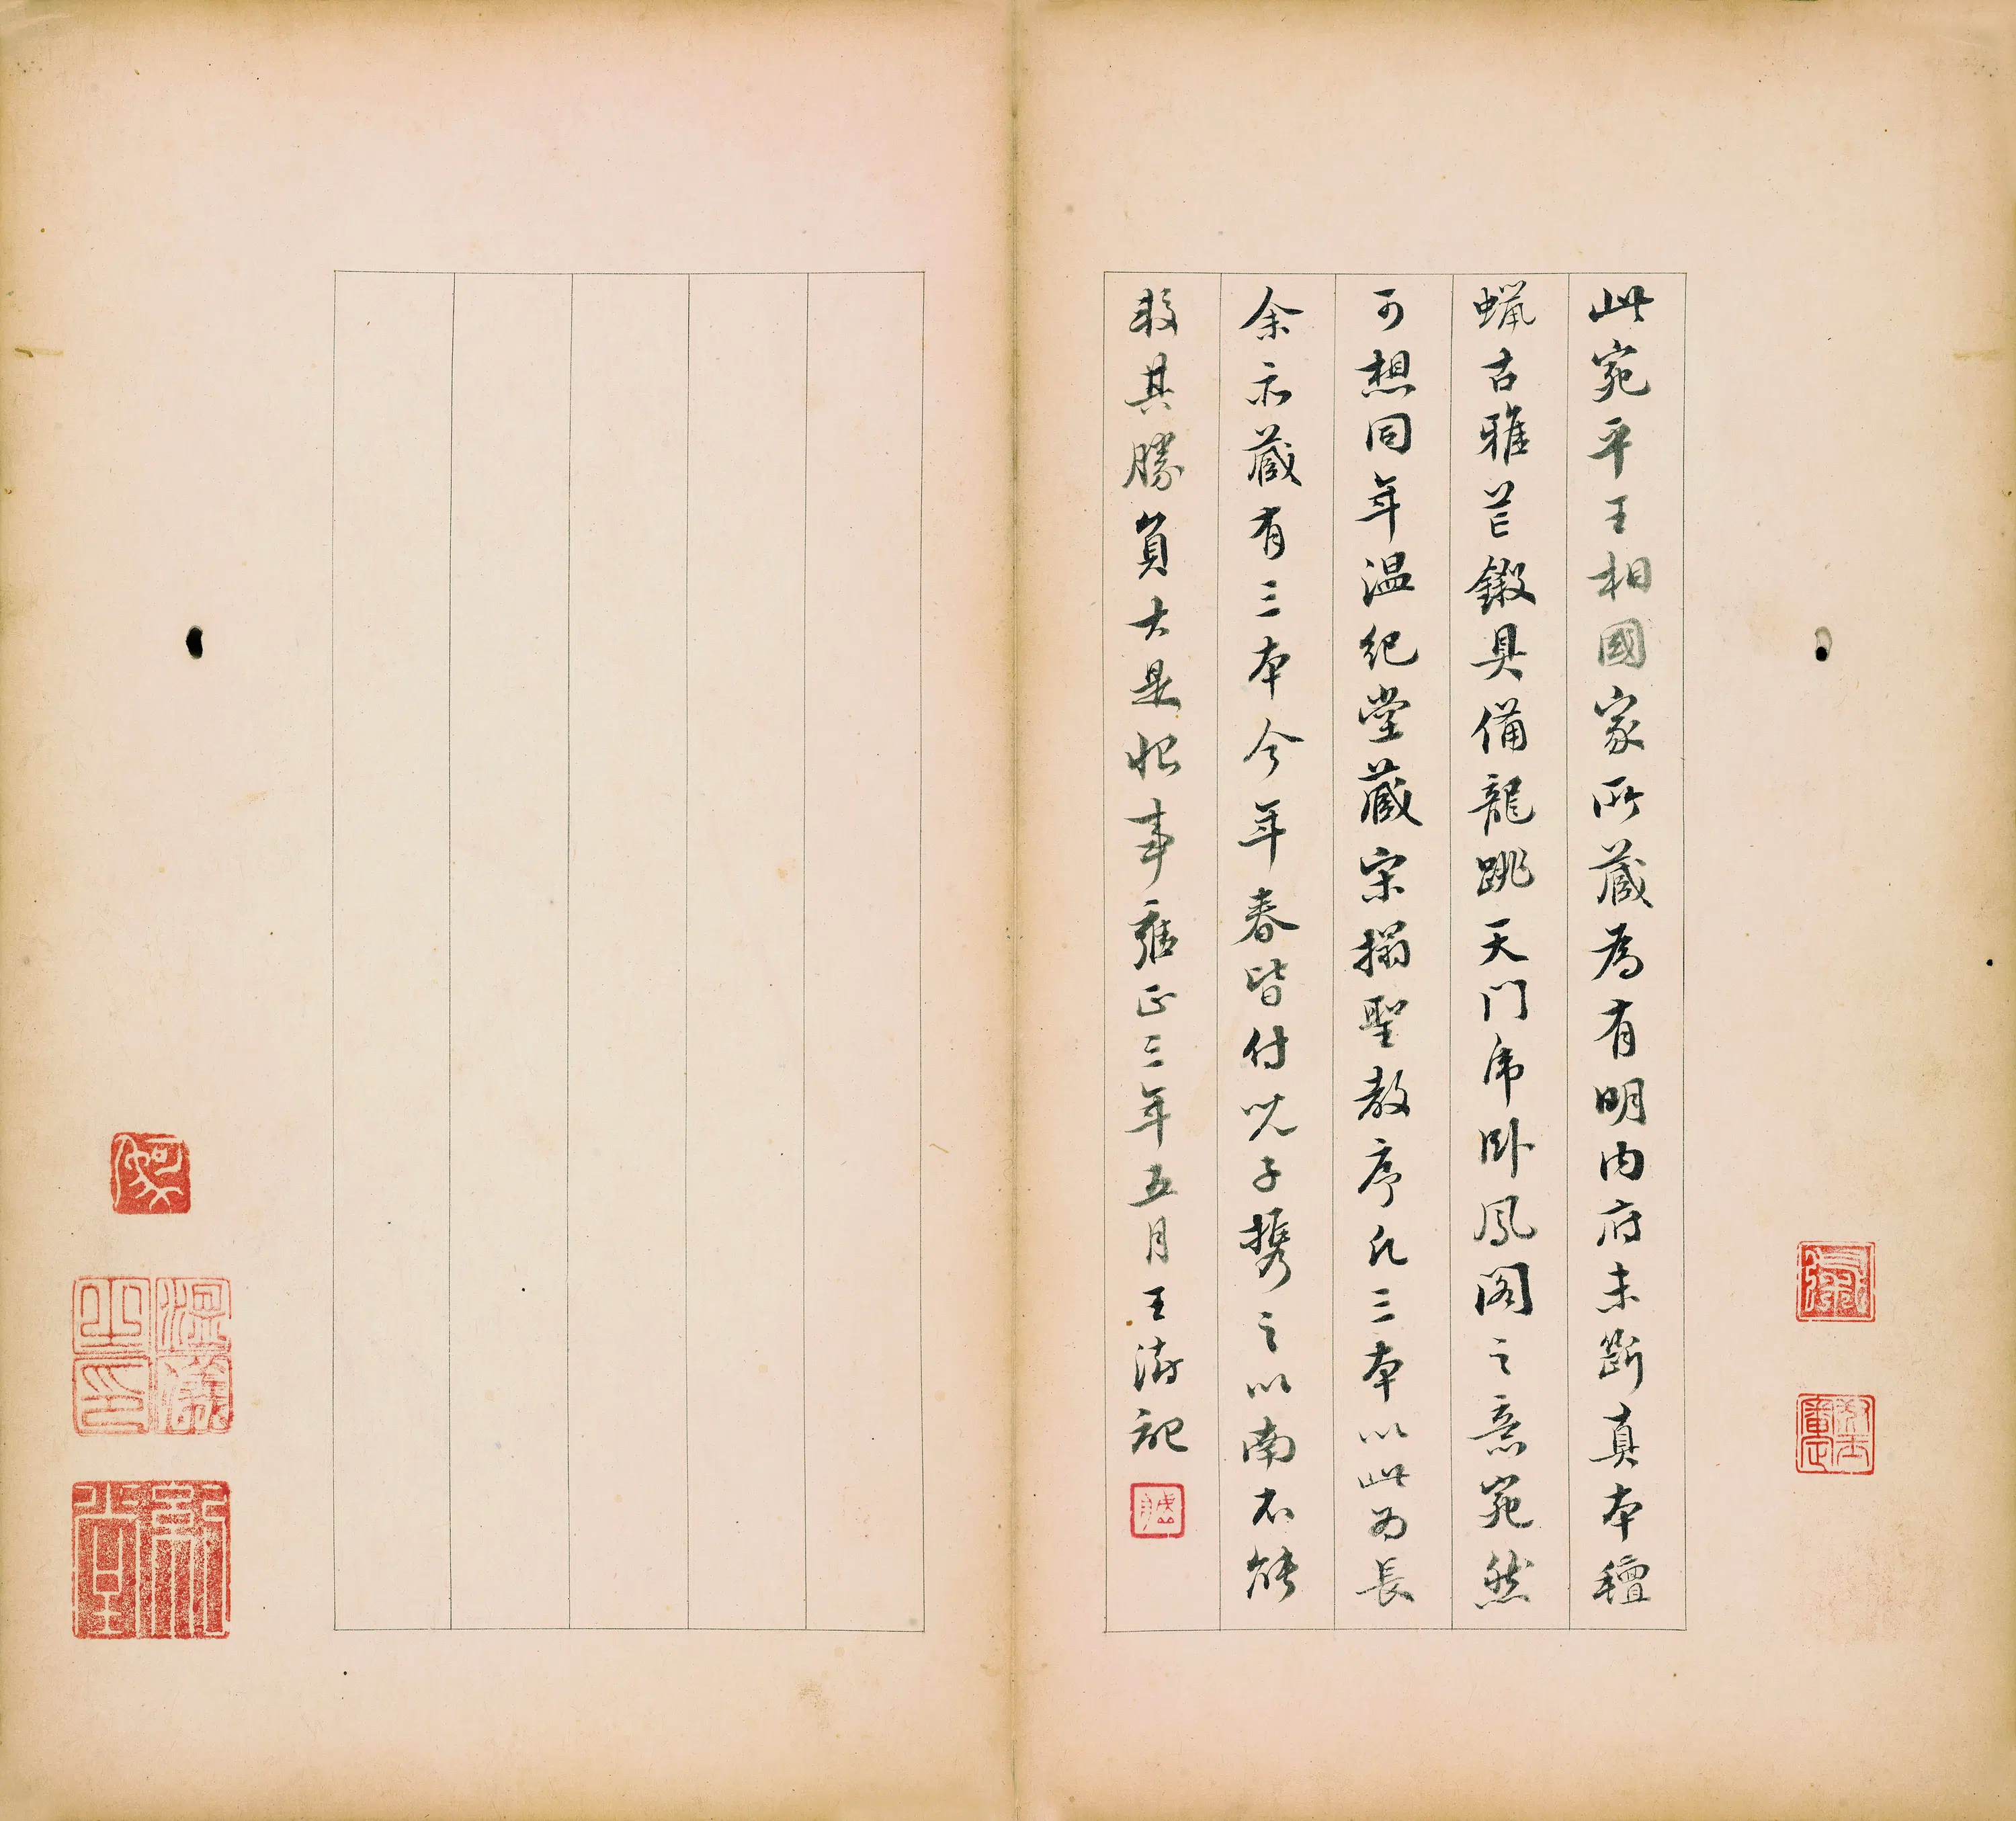 此宛平王相國家所藏為有明內府未斷真本氊
蠟古雅芒鎩具備龍跳天門虎卧鳳閣之意宛然
可想同年温紀堂藏宋搨聖教序凡三本以此為長
余亦藏有三本今年春皆付兒子攜之以南不能
較其勝負大是恨事雍正三年五月王澍記